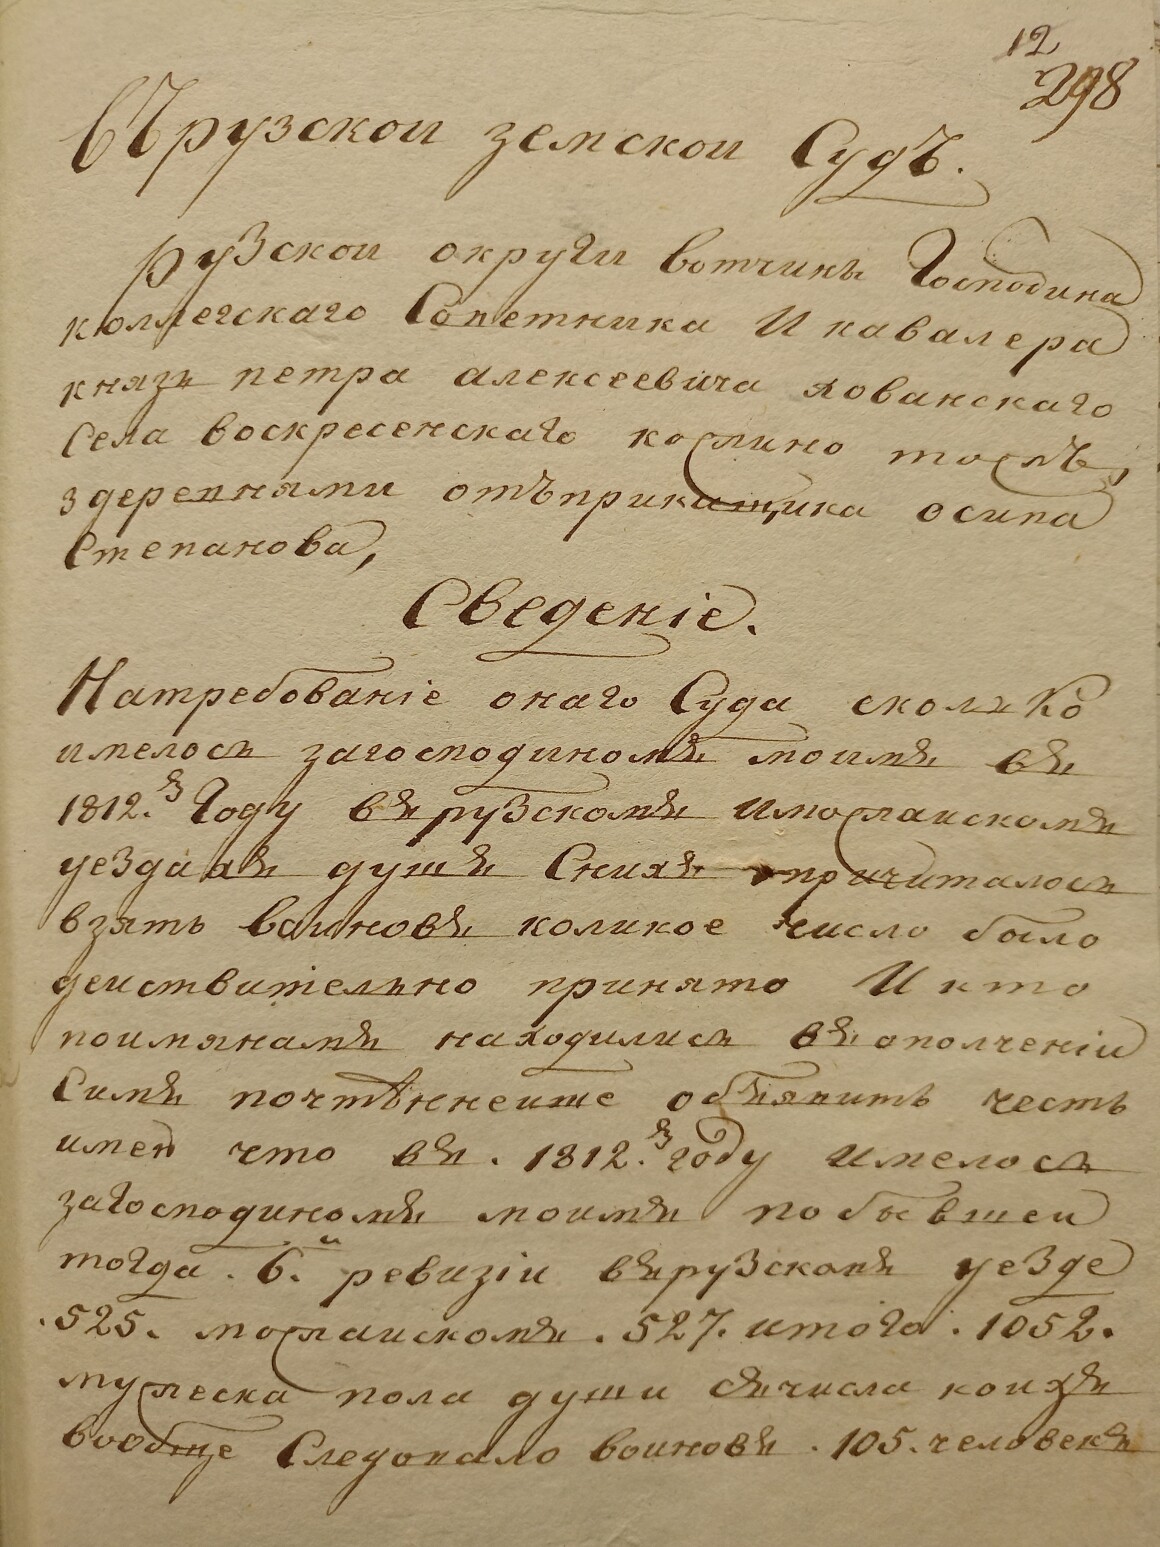 12
298
Въ рузскои земскои Судъ.
Рузскои округи вотчинъ Господина
коллегскаго Советника И кавалера
князь петра алексеевича хованскаго
Села воскресенскаго космино тожъ,
здеревнями отъприкащика осипа
Степанова,
Сведенiе.
Натребованiе онаго Суда сколько
имелось загосподиномъ моимъ въ
1812.мъ Году въ рузскомъ иможаискомъ
уездахъ душъ Снихъ причиталось
взять воиновъ коликое число было
деиствительно принято И кто
поимянамъ находились въ ополченiи
Симъ почтѣннеише объявить честь
имею что въ. 1812.мъ году имелось
загосподиномъ моимъ по бывшеи
тогда. 6.и ревизiи въ рузскомъ уезде
.525. можаискомъ. 527. итого. 1052.
мужеска пола души съчисла коихъ
вообще Следовало воиновъ. 105. человекъ